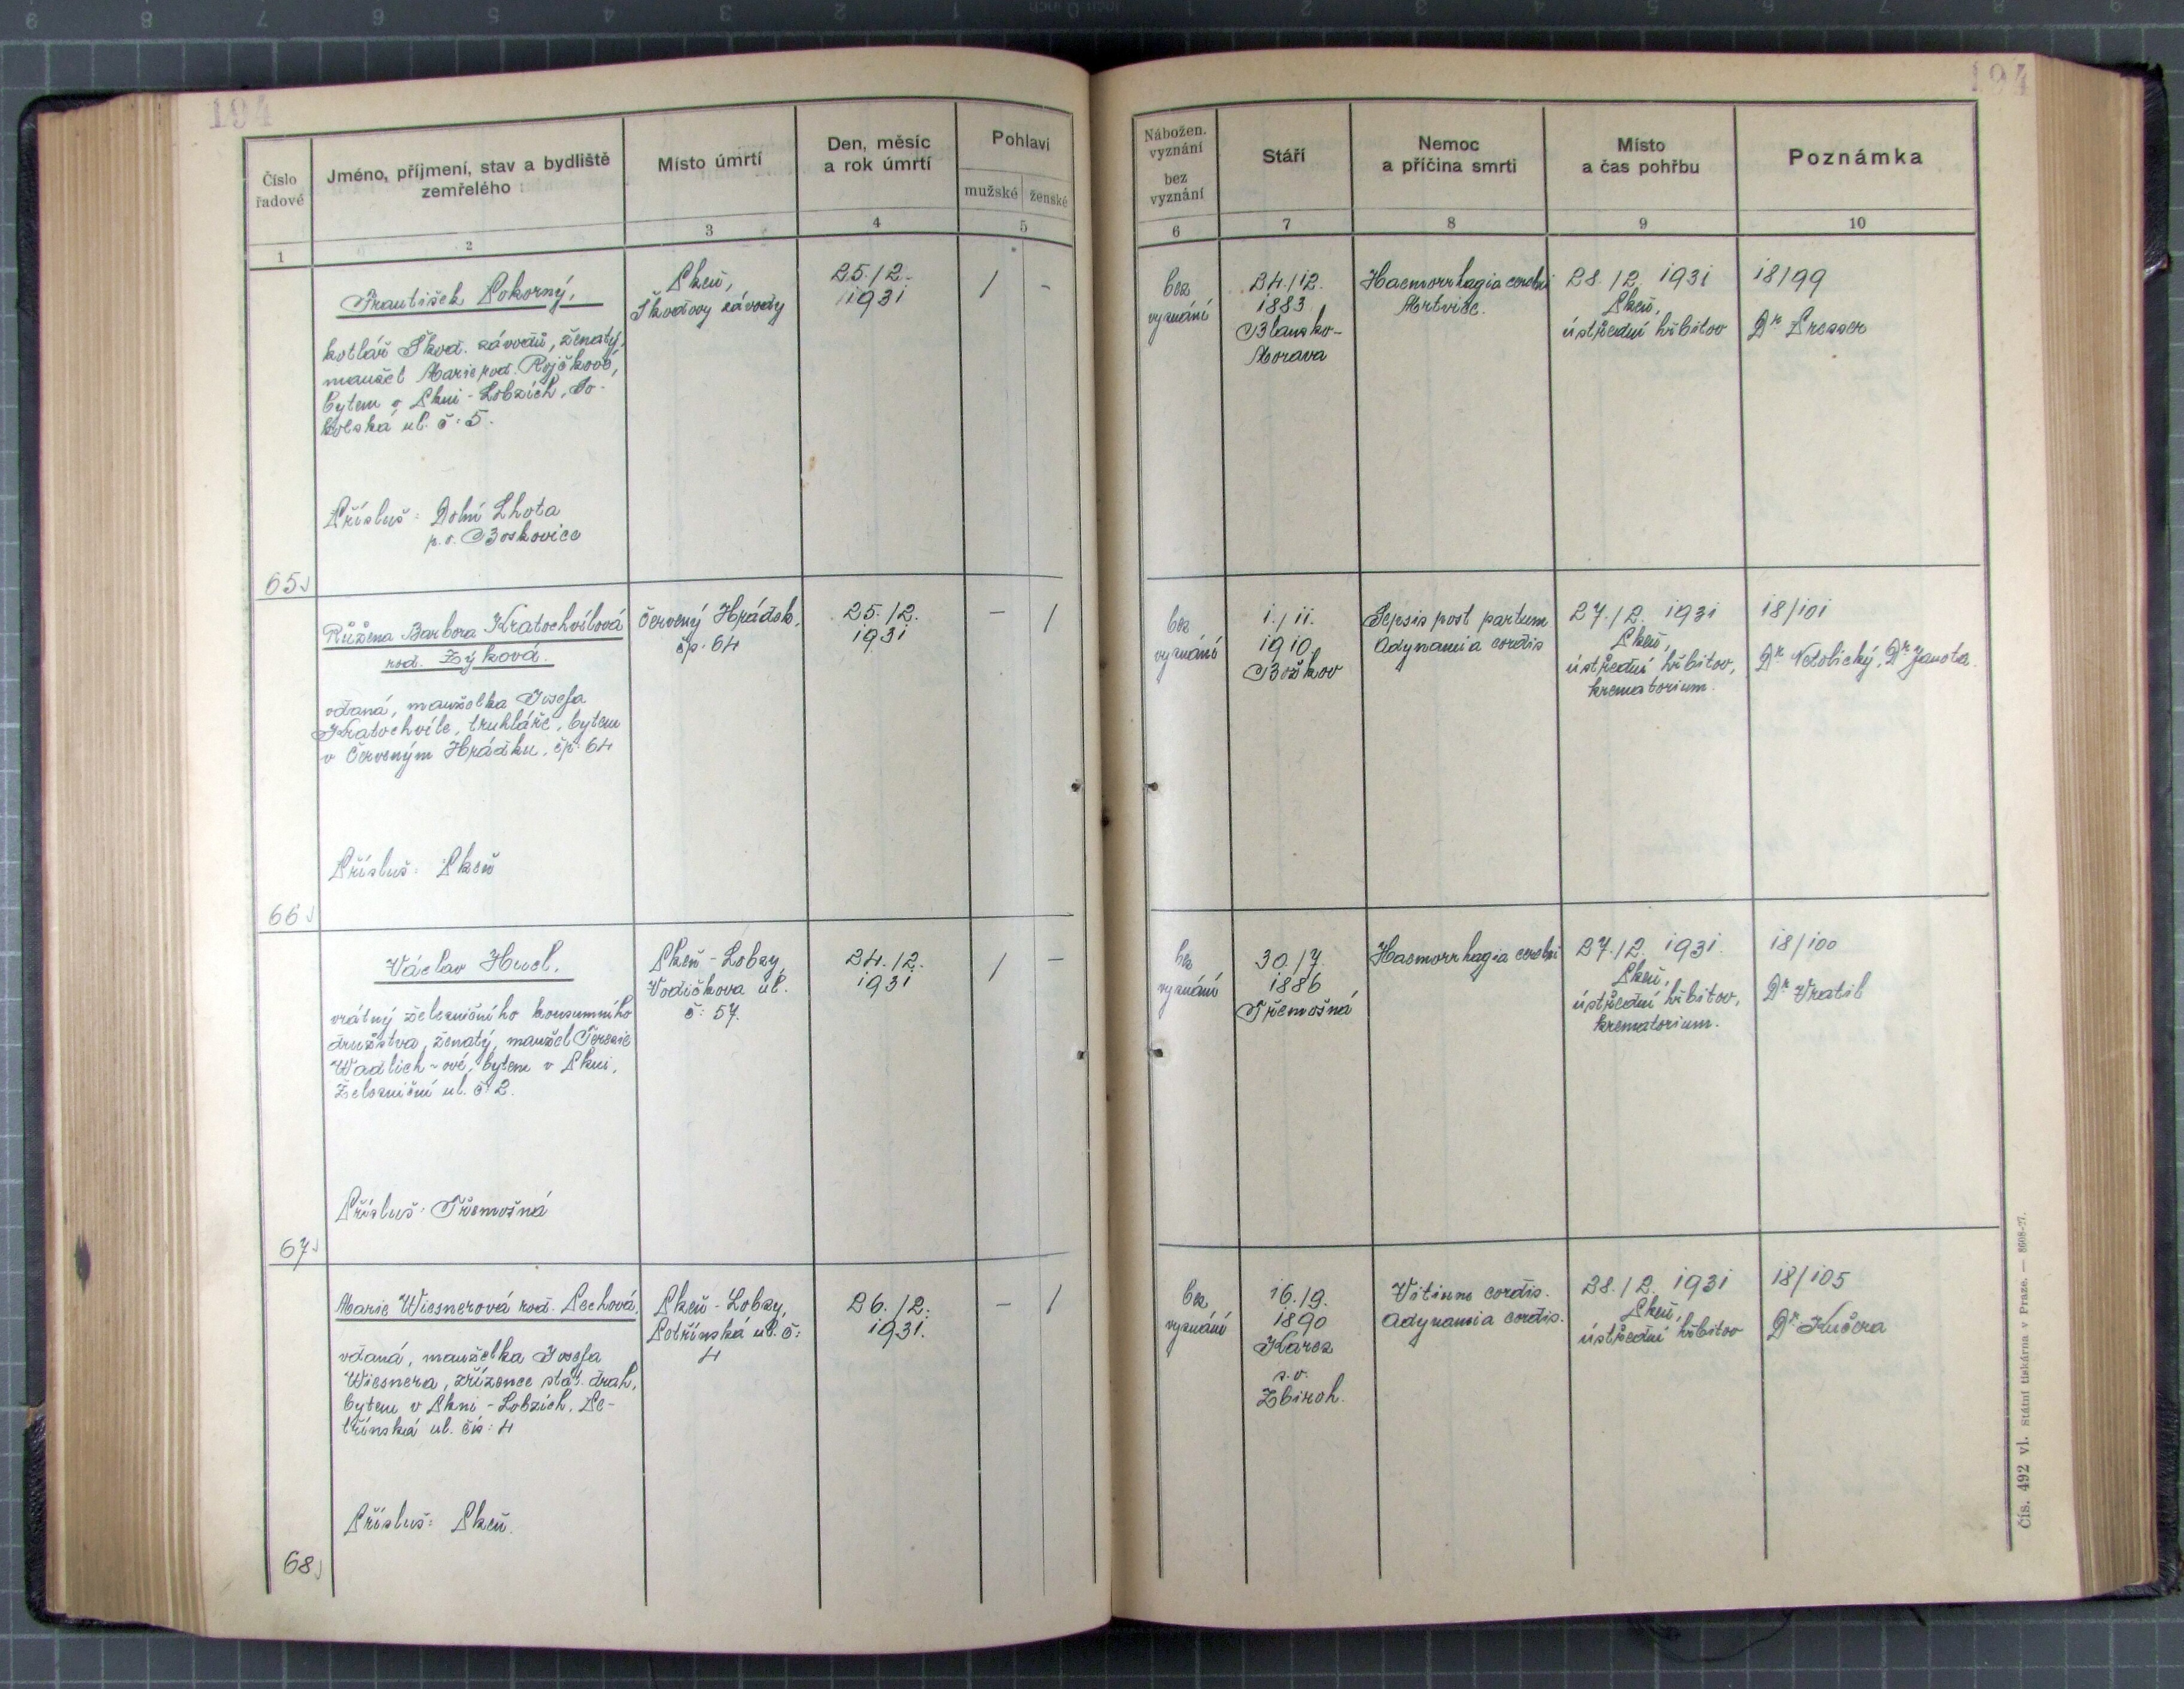 194
194
Číslo
řadové
Jméno, příjmení, stav a bydliště
zemřelého
Místo úmrtí
Den, měsíc
a rok úmrtí
Pohlaví
mužské
ženské
1
2
3
4
5
František Pokorný,
kotlář Škod. závodů, ženatý,
manžel Marie rod.
bytem v Plzni - Lobzích, So-
kolská ul. č: 5.
Přísluš: Dolní Lhota
p. o. Boskovice
65
Plzeň,
Škodovy závody
25./12.
1931
/
-
Růžena Barbora Kratochvílová
rod. Zýková.
vdaná, manželka Josefa
Kratochvíle, truhláře, bytem
v Červeným Hrádku, čp. 64
Přísluš: Plzeň
66
Červený Hrádek,
čp. 64
25./12.
1931
-
/
Václav Hucl,
vrátný železničního konsumního
družstva, ženatý, manžel Terezie
Wadlich-ové, bytem v Plzni,
Železniční ul. č: 2.
Přísluš: Třemošná
67
Plzeň - Lobzy,
Vodičkova ul.
č: 57.
24./12.
1931
/
-
Marie Wiesnerová rod. Pechová,
vdaná, manželka Josefa
Wiesnera, zřízence stát. drah,
bytem v Plzni - Lobzích, Pe-
třínská ul. čís: 4
Přísluš: Plzeň.
68
Plzeň - Lobzy,
Petřínská ul. č:
4
26./12.
1931.
-
/
Nábožen.
vyznání
bez
vyznání
Stáří
Nemoc
a příčina smrti
Místo
a čas pohřbu
Poznámka
6
7
8
9
10
bez
vyznání
24./12.
1883
Blansko-
Morava
Haemorrhagia cerebri
Mrtvice.
28./12. 1931
Plzeň,
ústřední hřbitov
18/99
Dr Presser
bez
vyznání
1./11.
1910
Božkov
Sepsis post partum
Adynamia cordis
27./12. 1931
Plzeň,
ústřední hřbitov,
krematorium.
18/101
Dr Netolický, Dr Janota.
bez
vyznání
30./7.
1886
Třemošná
Haemorrhagia cerebri
27./12. 1931.
Plzeň,
ústřední hřbitov,
krematorium.
18/100
Dr Vratil
bez
vyznání
16./9.
1890
Karez
s. o.
Zbiroh.
Vitium cordis.
Adynamia cordis.
28./12. 1931
Plzeň,
ústřední hřbitov
18/105
Dr Kučera
Čís. 492 vl. Státní tiskárna v Praze. — 8608-27.